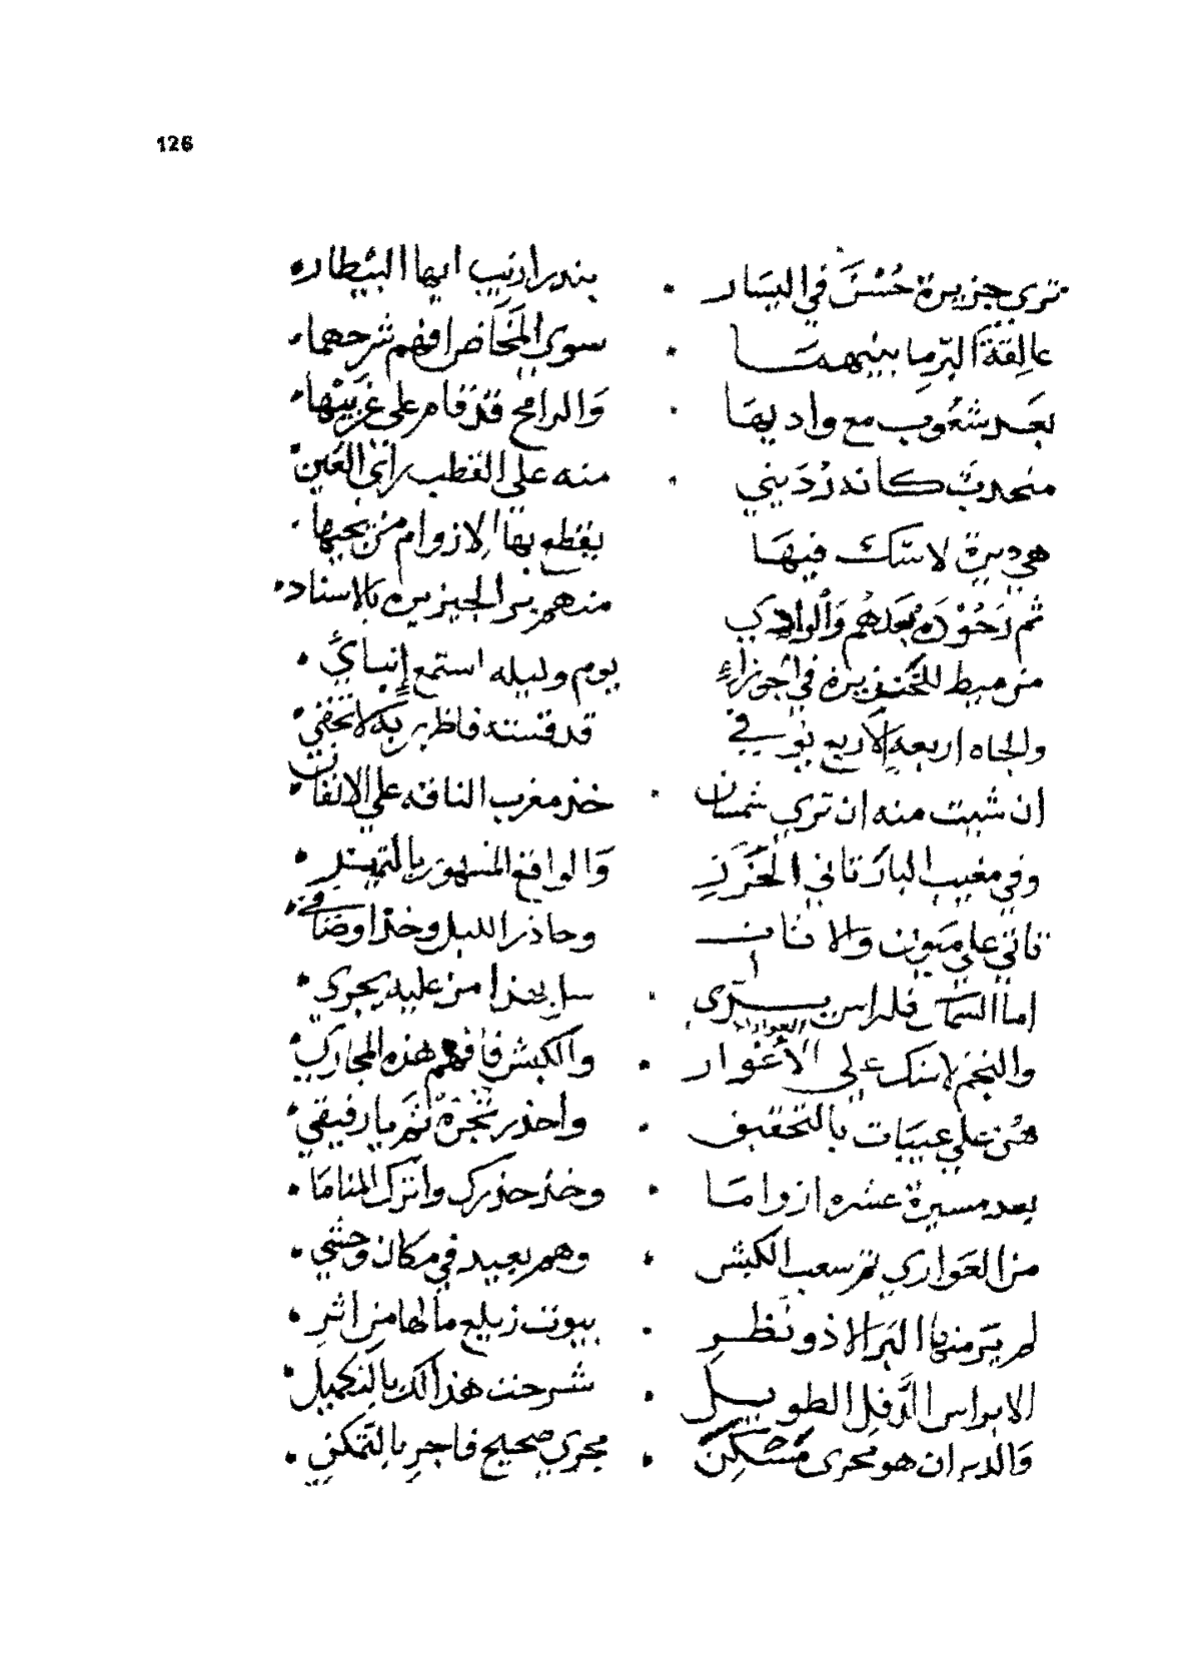 126
تري جزيرة حُسْنَ في اليسَار • بندر ارنيب ايها البيطار •
عالقة البرّ ما بينهمَا • سوى المخَاض افهم شرحهما •
بعَد شعُوب مع واديهَا • وَالرامح قد قام على غربيّها •
منحدرٌ كانه رُدَيني • منه على القطب براي العَين •
هي ديرة لا شك فيهَا بقطع بها الازوام من يحبها •
ثم دَحُوْ دَهْ بعدهم وَالوادي منهم بر الجيزيره بالاسناد •
من ميط للخنزيرة في اجوزاءِ يوم وليله استمع إنبايَ •
والجاه اربعةِ الاربع يوفي قد قسته فاظهر بَه لا تخفي •
ان شيت منه ان تري شمسان • خذ مغرب الناقه علي الاتقان •
وفي مغيب البار تاتي الحَرَزِ وَالواقع المشهور بالتمييز •
تاتي علي ميون والا فان وحاذر الليل وخذ اوصافي •
اما السمَاك فله راس يرى • سل بعد ذا من عليه يجري •
والنجم لا شك علي الاغوار • والكبش فافهم هذه المجاري •
هُن علي عبيات بالتحقيق • واحذر تجرة ثم يا رفيقي •
بعد مسيرة عشره ازوامَا • وخذ حذرك واترك المنامَا •
من العَواري ثم سعب الكبش • وهم بعيد في مكان وحشي •
لم يَر منها البَر الا ذو نَظرِ • بيوت زيلع ما لها من اثرِ •
الا براس الدفل الطويل • شرحت هذا لك بالتكميل •
وَالدبران هو مجرى مُشكِن • مجري صحيح فاجرِ بالتمكن •